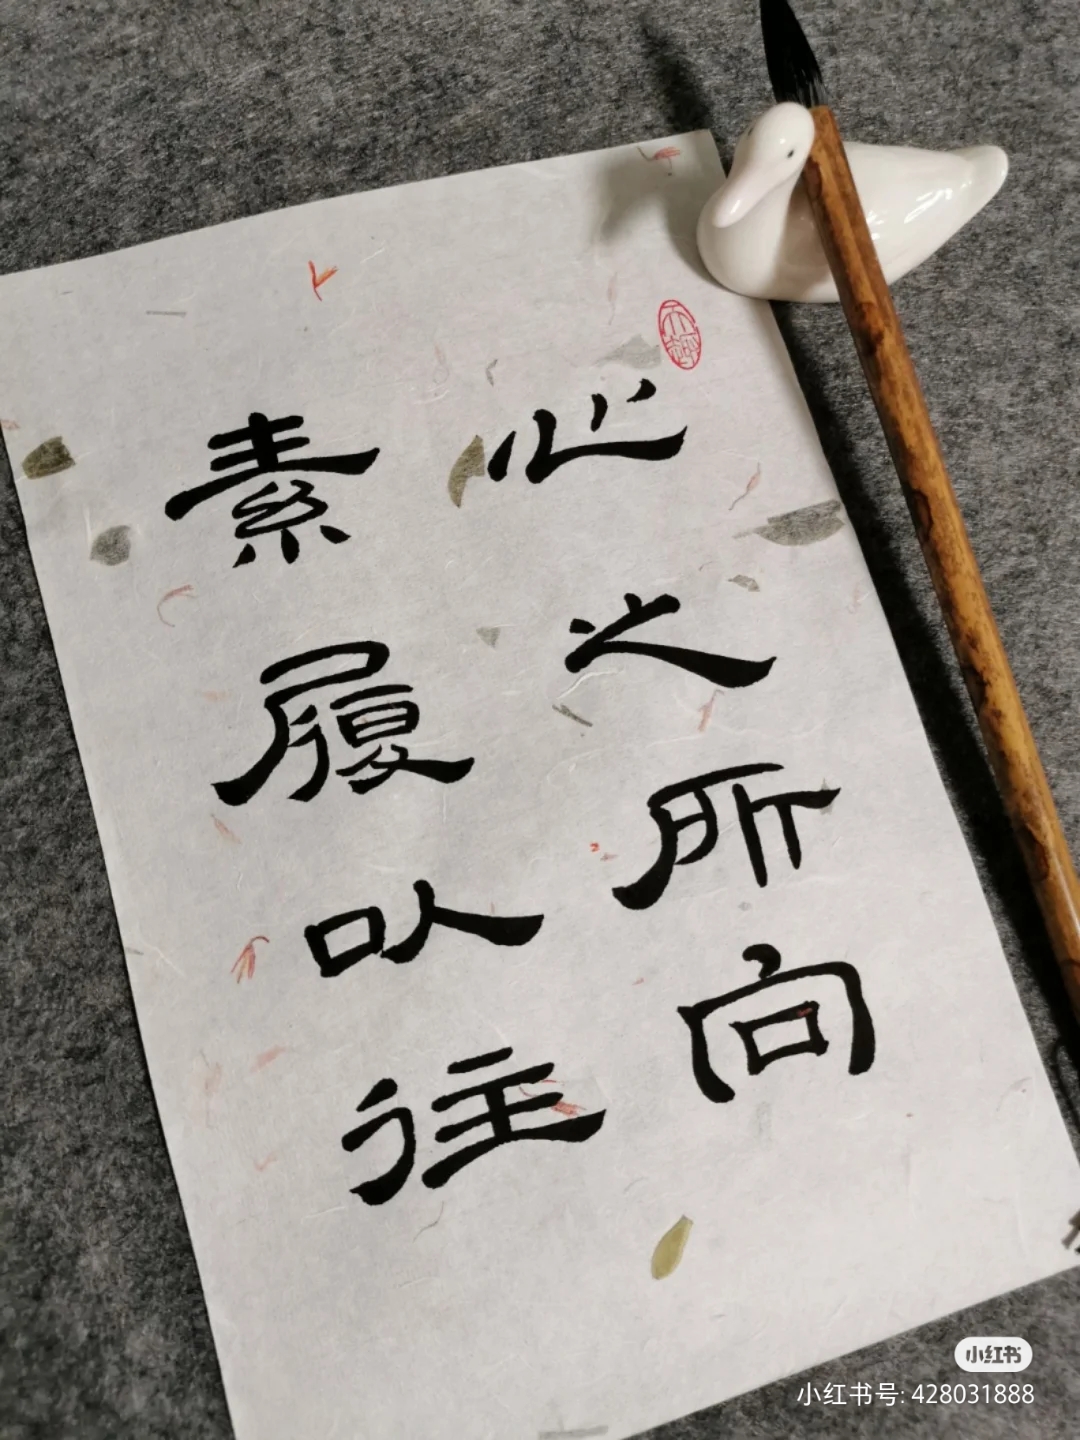 心之所向
素履以往
小红书
小红书号: 428031888